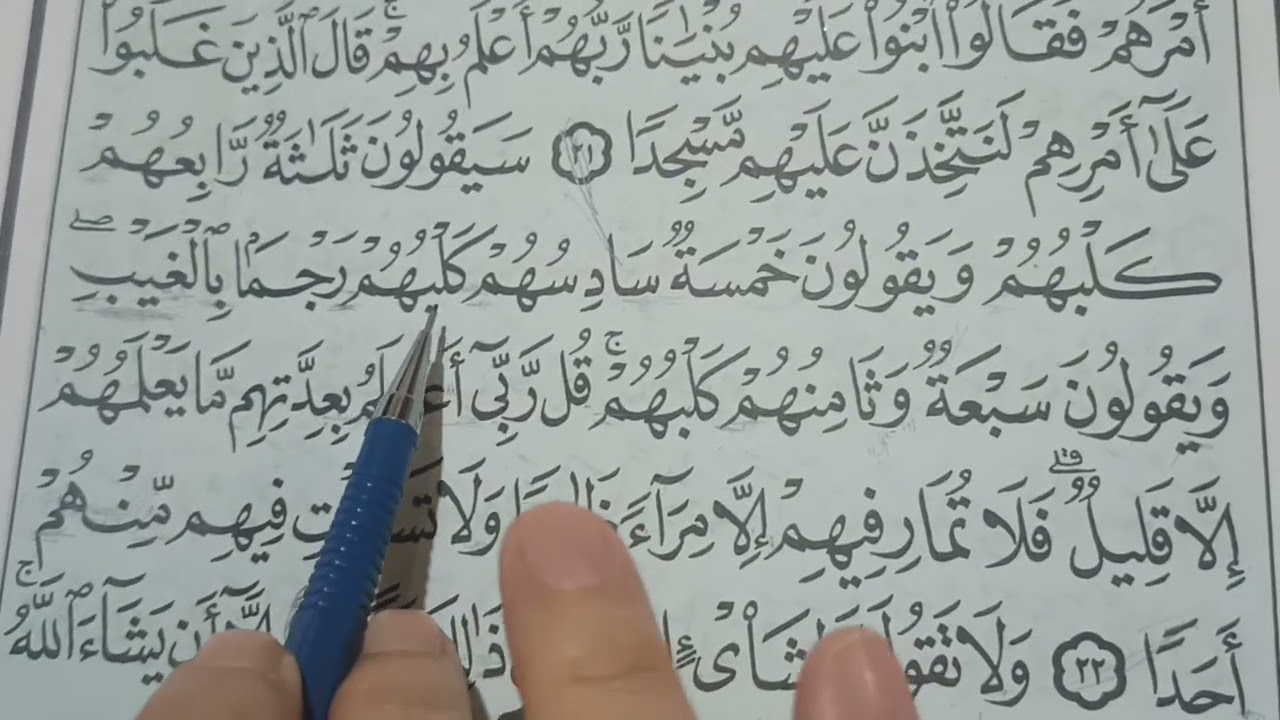 أَمْرَهُمْ فَقَالُوا۟ ٱبْنُوا۟ عَلَيْهِم بُنْيَـٰنًا رَّبُّهُمْ أَعْلَمُ بِهِمْ ۚ قَالَ ٱلَّذِينَ غَلَبُوا۟
عَلَىٰٓ أَمْرِهِمْ لَنَتَّخِذَنَّ عَلَيْهِم مَّسْجِدًا ٢١ سَيَقُولُونَ ثَلَـٰثَةٌ رَّابِعُهُمْ
كَلْبُهُمْ وَيَقُولُونَ خَمْسَةٌ سَادِسُهُمْ كَلْبُهُمْ رَجْمًۢا بِٱلْغَيْبِ ۖ
وَيَقُولُونَ سَبْعَةٌ وَثَامِنُهُمْ كَلْبُهُمْ ۚ قُل رَّبِّىٓ أَعْلَمُ بِعِدَّتِهِم مَّا يَعْلَمُهُمْ
إِلَّا قَلِيلٌ ۗ فَلَا تُمَارِ فِيهِمْ إِلَّا مِرَآءً وَلَا فِيهِم مِّنْهُمْ
أَحَدًا ٢٢ وَلَا إِلَّآ أَن يَشَآءَ ٱللَّهُ ۚ